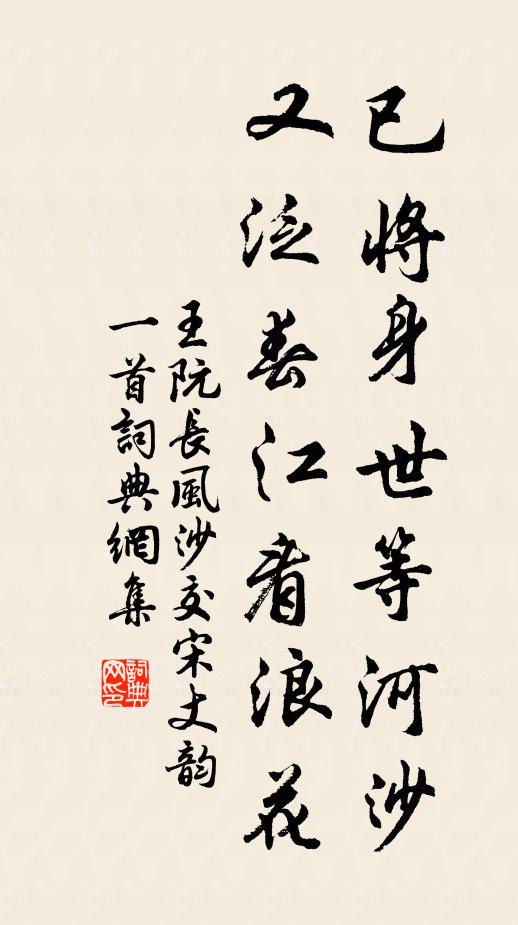 已將身世等河沙
又泛春江看浪花
王阮長風沙交宋丈韵
一首詞典網集
詞典
网印